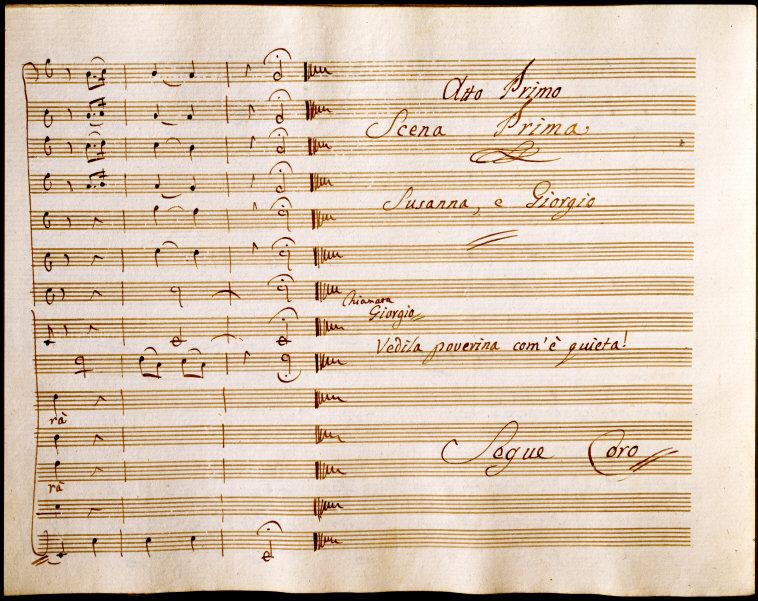 Atto Primo
Scena Prima
Susanna, e Giorgio
Chiamata
Giorgio
Vedila poverina com'è quieta!
rà
Segue Coro
rà